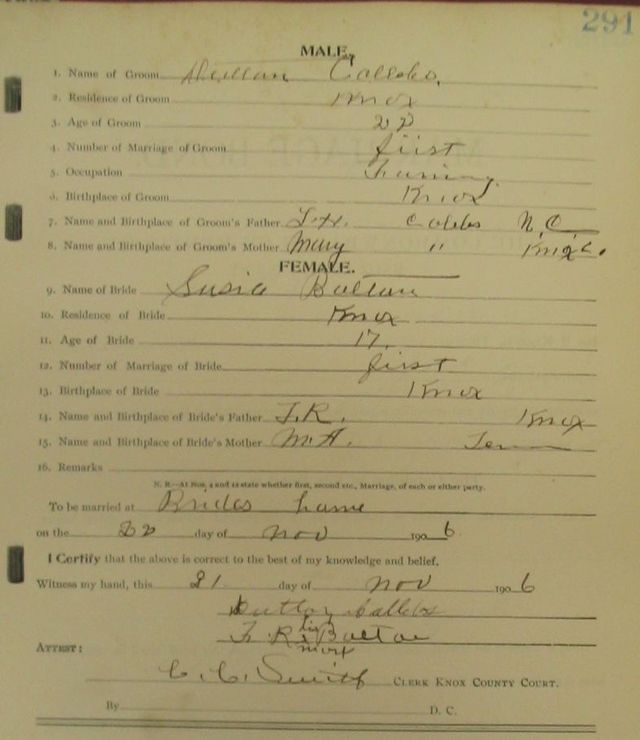 291
MALE.
1. Name of Groom
2. Residence of Groom Knox
3. Age of Groom 22
4. Number of Marriage of Groom first
5. Occupation
6. Birthplace of Groom Knox
7. Name and Birthplace of Groom's Father N. C.
8. Name and Birthplace of Groom's Mother Mary " Knox Co.
FEMALE.
9. Name of Bride Susie
10. Residence of Bride Knox
11. Age of Bride 17.
12. Number of Marriage of Bride first
13. Birthplace of Bride Knox
14. Name and Birthplace of Bride's Father Knox
15. Name and Birthplace of Bride's Mother M. A. Tenn
16. Remarks
N. B.—At Nos. 4 and 12 state whether first, second etc., Marriage, of each or either party.
To be married at Brides home
on the 22 day of nov 1906
I Certify that the above is correct to the best of my knowledge and belief.
Witness my hand, this 21 day of nov 1906
his
mark
ATTEST:
C. C. Smith CLERK KNOX COUNTY COURT.
By D. C.